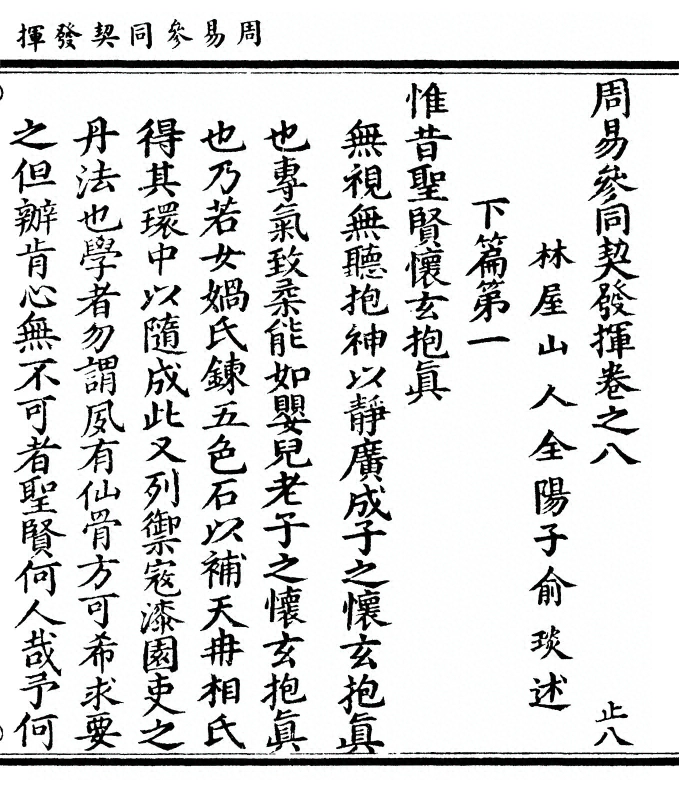 周易參同契發揮
周易參同契發揮卷之八
止八
林屋山人全陽子俞琰述
下篇第一
惟昔聖賢懷玄抱眞
無視無聽抱神以靜廣成子之懷玄抱眞
也專氣致柔能如嬰兒老子之懷玄抱眞
也乃若女媧氏鍊五色石以補天冉相氏
得其環中以隨成此又列禦寇漆園吏之
丹法也學者勿謂夙有仙骨方可希求要
之但辦肯心無不可者聖賢何人哉予何